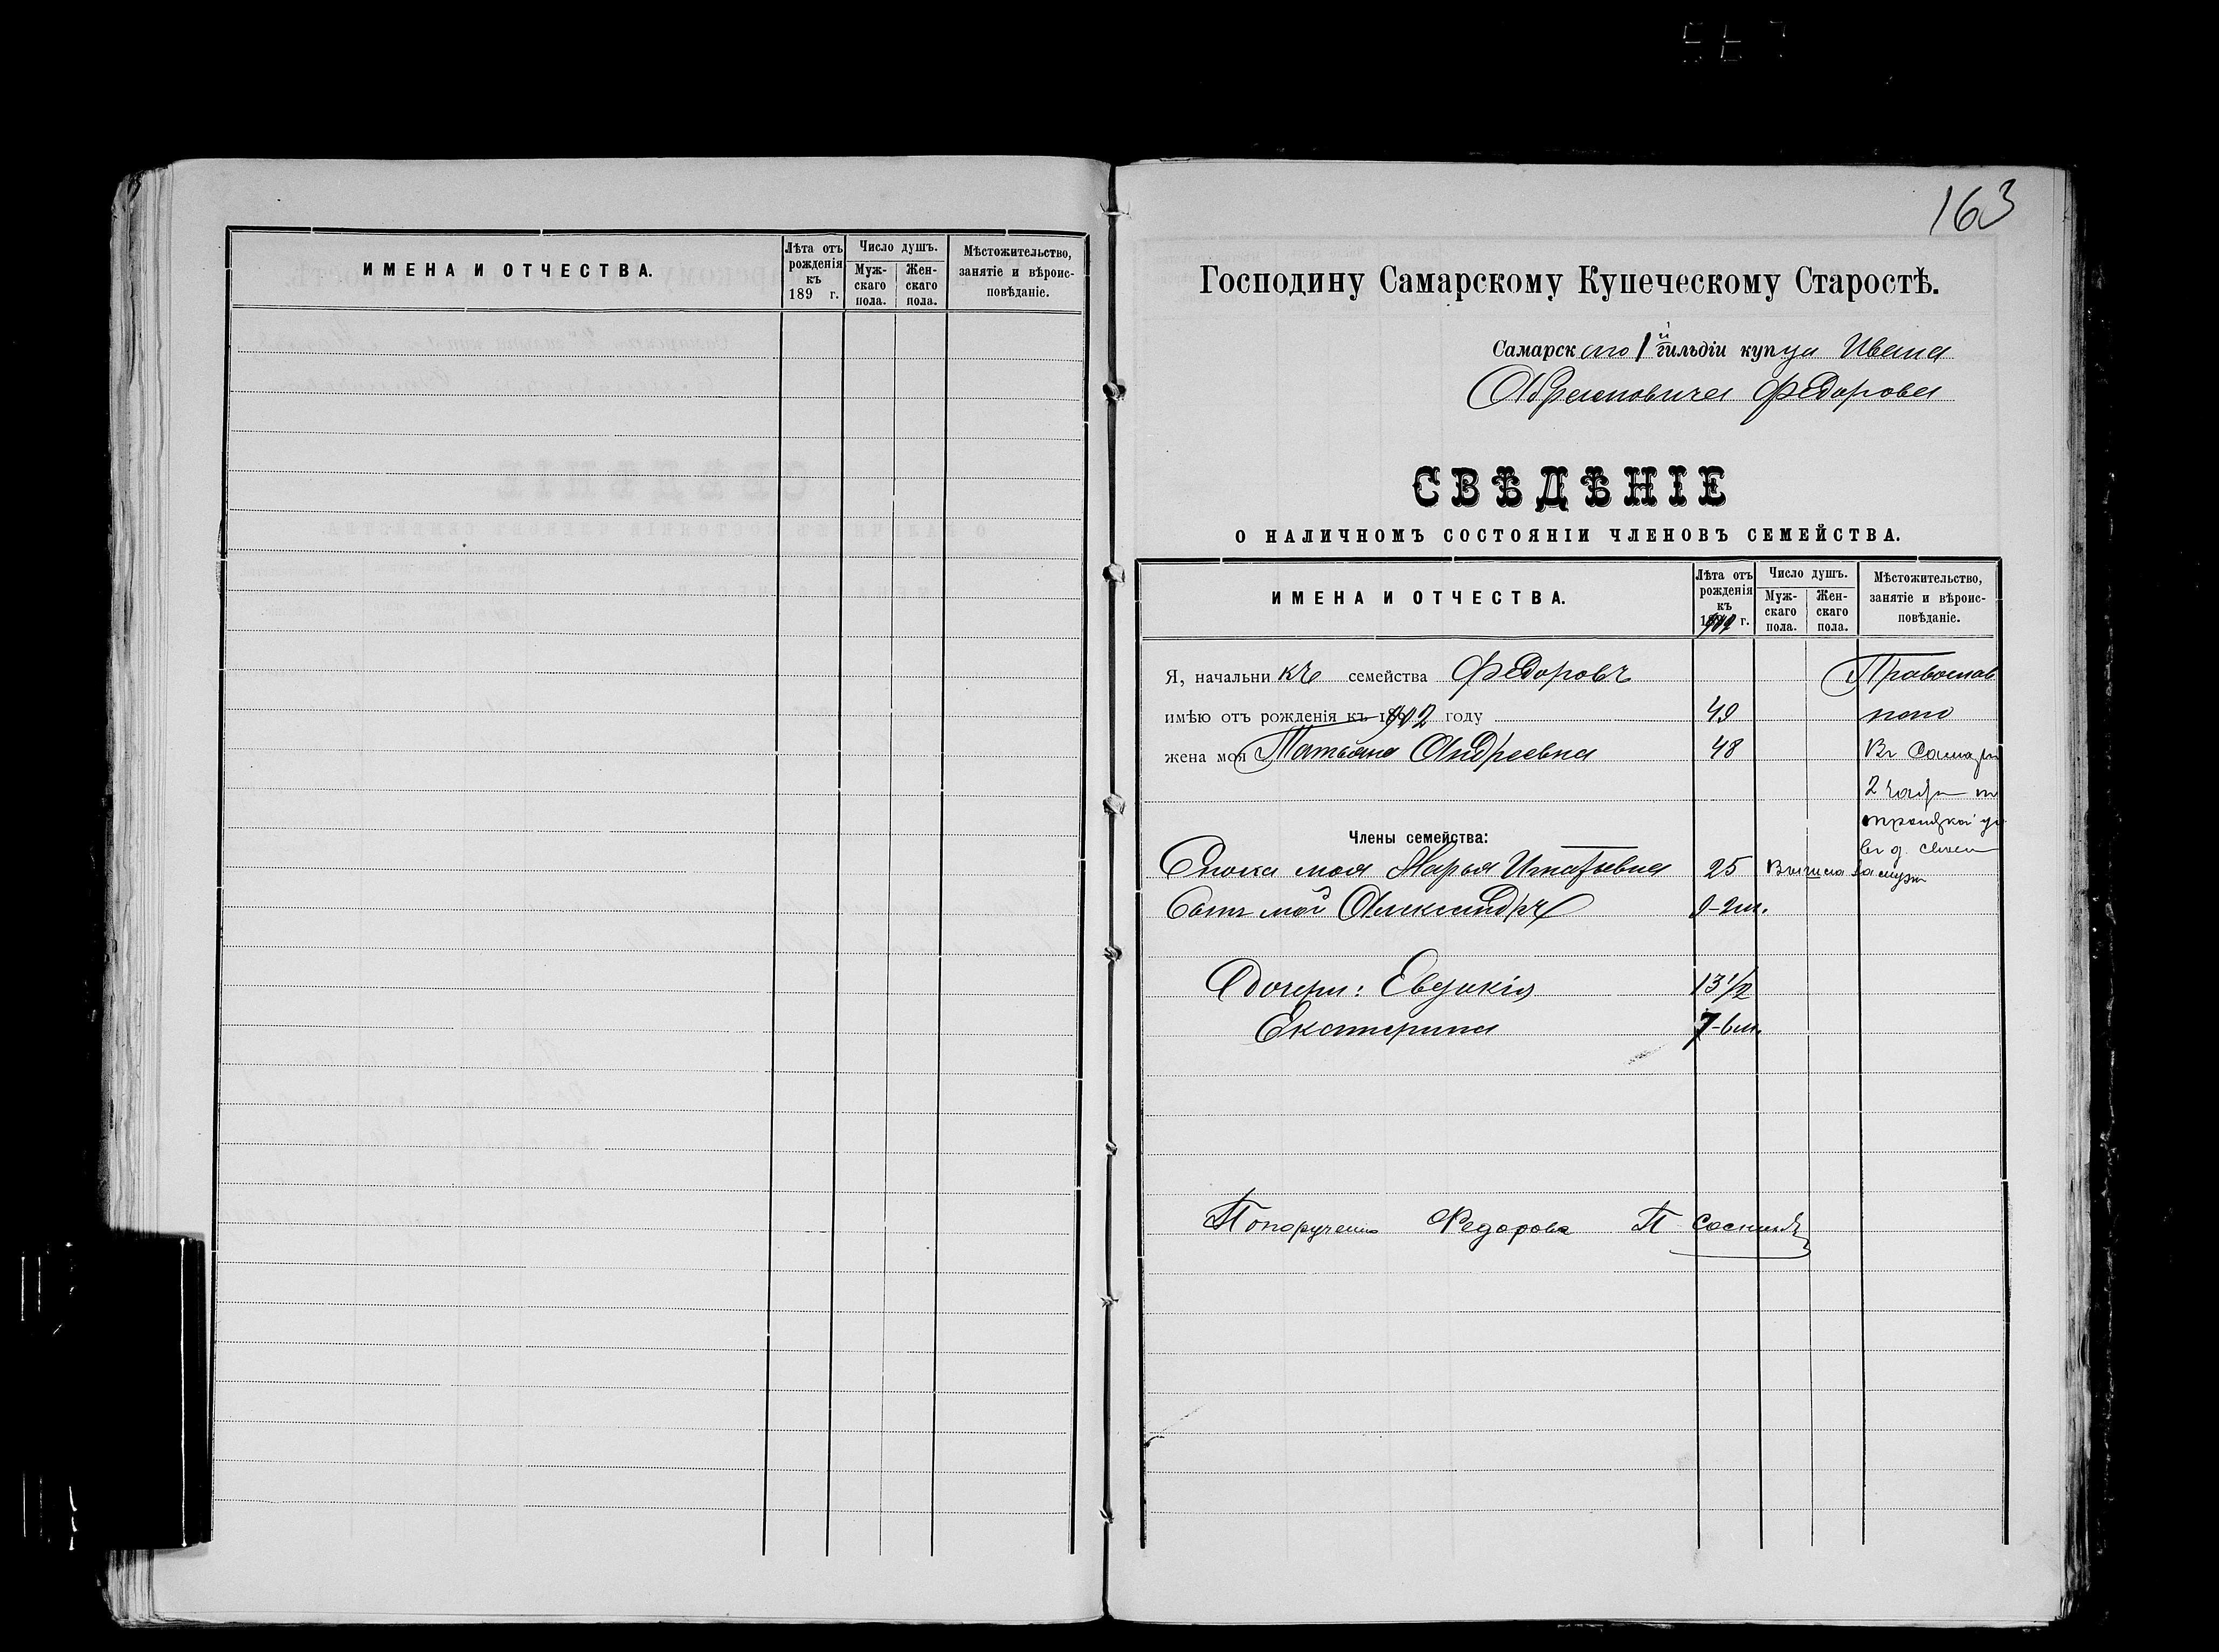 ИМЕНА И ОТЧЕСТВА.
Лѣта отъ рожденія къ 189 г.
Число душъ.
Муж-скаго пола.
Жен-скаго пола.
Мѣстожительство, занятіе и вѣроис-повѣданіе.
163
Господину Самарскому Купеческому Старостѣ.
Самарскаго 1й гильдіи купца Ивана
Абрамовича Федорова
СВѢДѢНІЕ
О НАЛИЧНОМЪ СОСТОЯНІИ ЧЛЕНОВЪ СЕМЕЙСТВА.
ИМЕНА И ОТЧЕСТВА.
Лѣта отъ рожденія къ 1902 г.
Число душъ.
Муж-скаго пола.
Жен-скаго пола.
Мѣстожительство, занятіе и вѣроис-повѣданіе.
Я, начальникъ семейства Федоровъ Православ
имѣю отъ рожденія къ 1902 году 49 наго
жена моя Татьяна Андреевна 48 Въ Самарѣ
2 части
Троицкой ул
въ д. своем
Члены семейства:
Сноха моя Марья Игнатьевна 25 Вышла замуж
Сынъ мой Александръ 9-2м.
Дочери: Евдокія 13 1/2
Екатерина 7-6м.
По порученію Федорова П